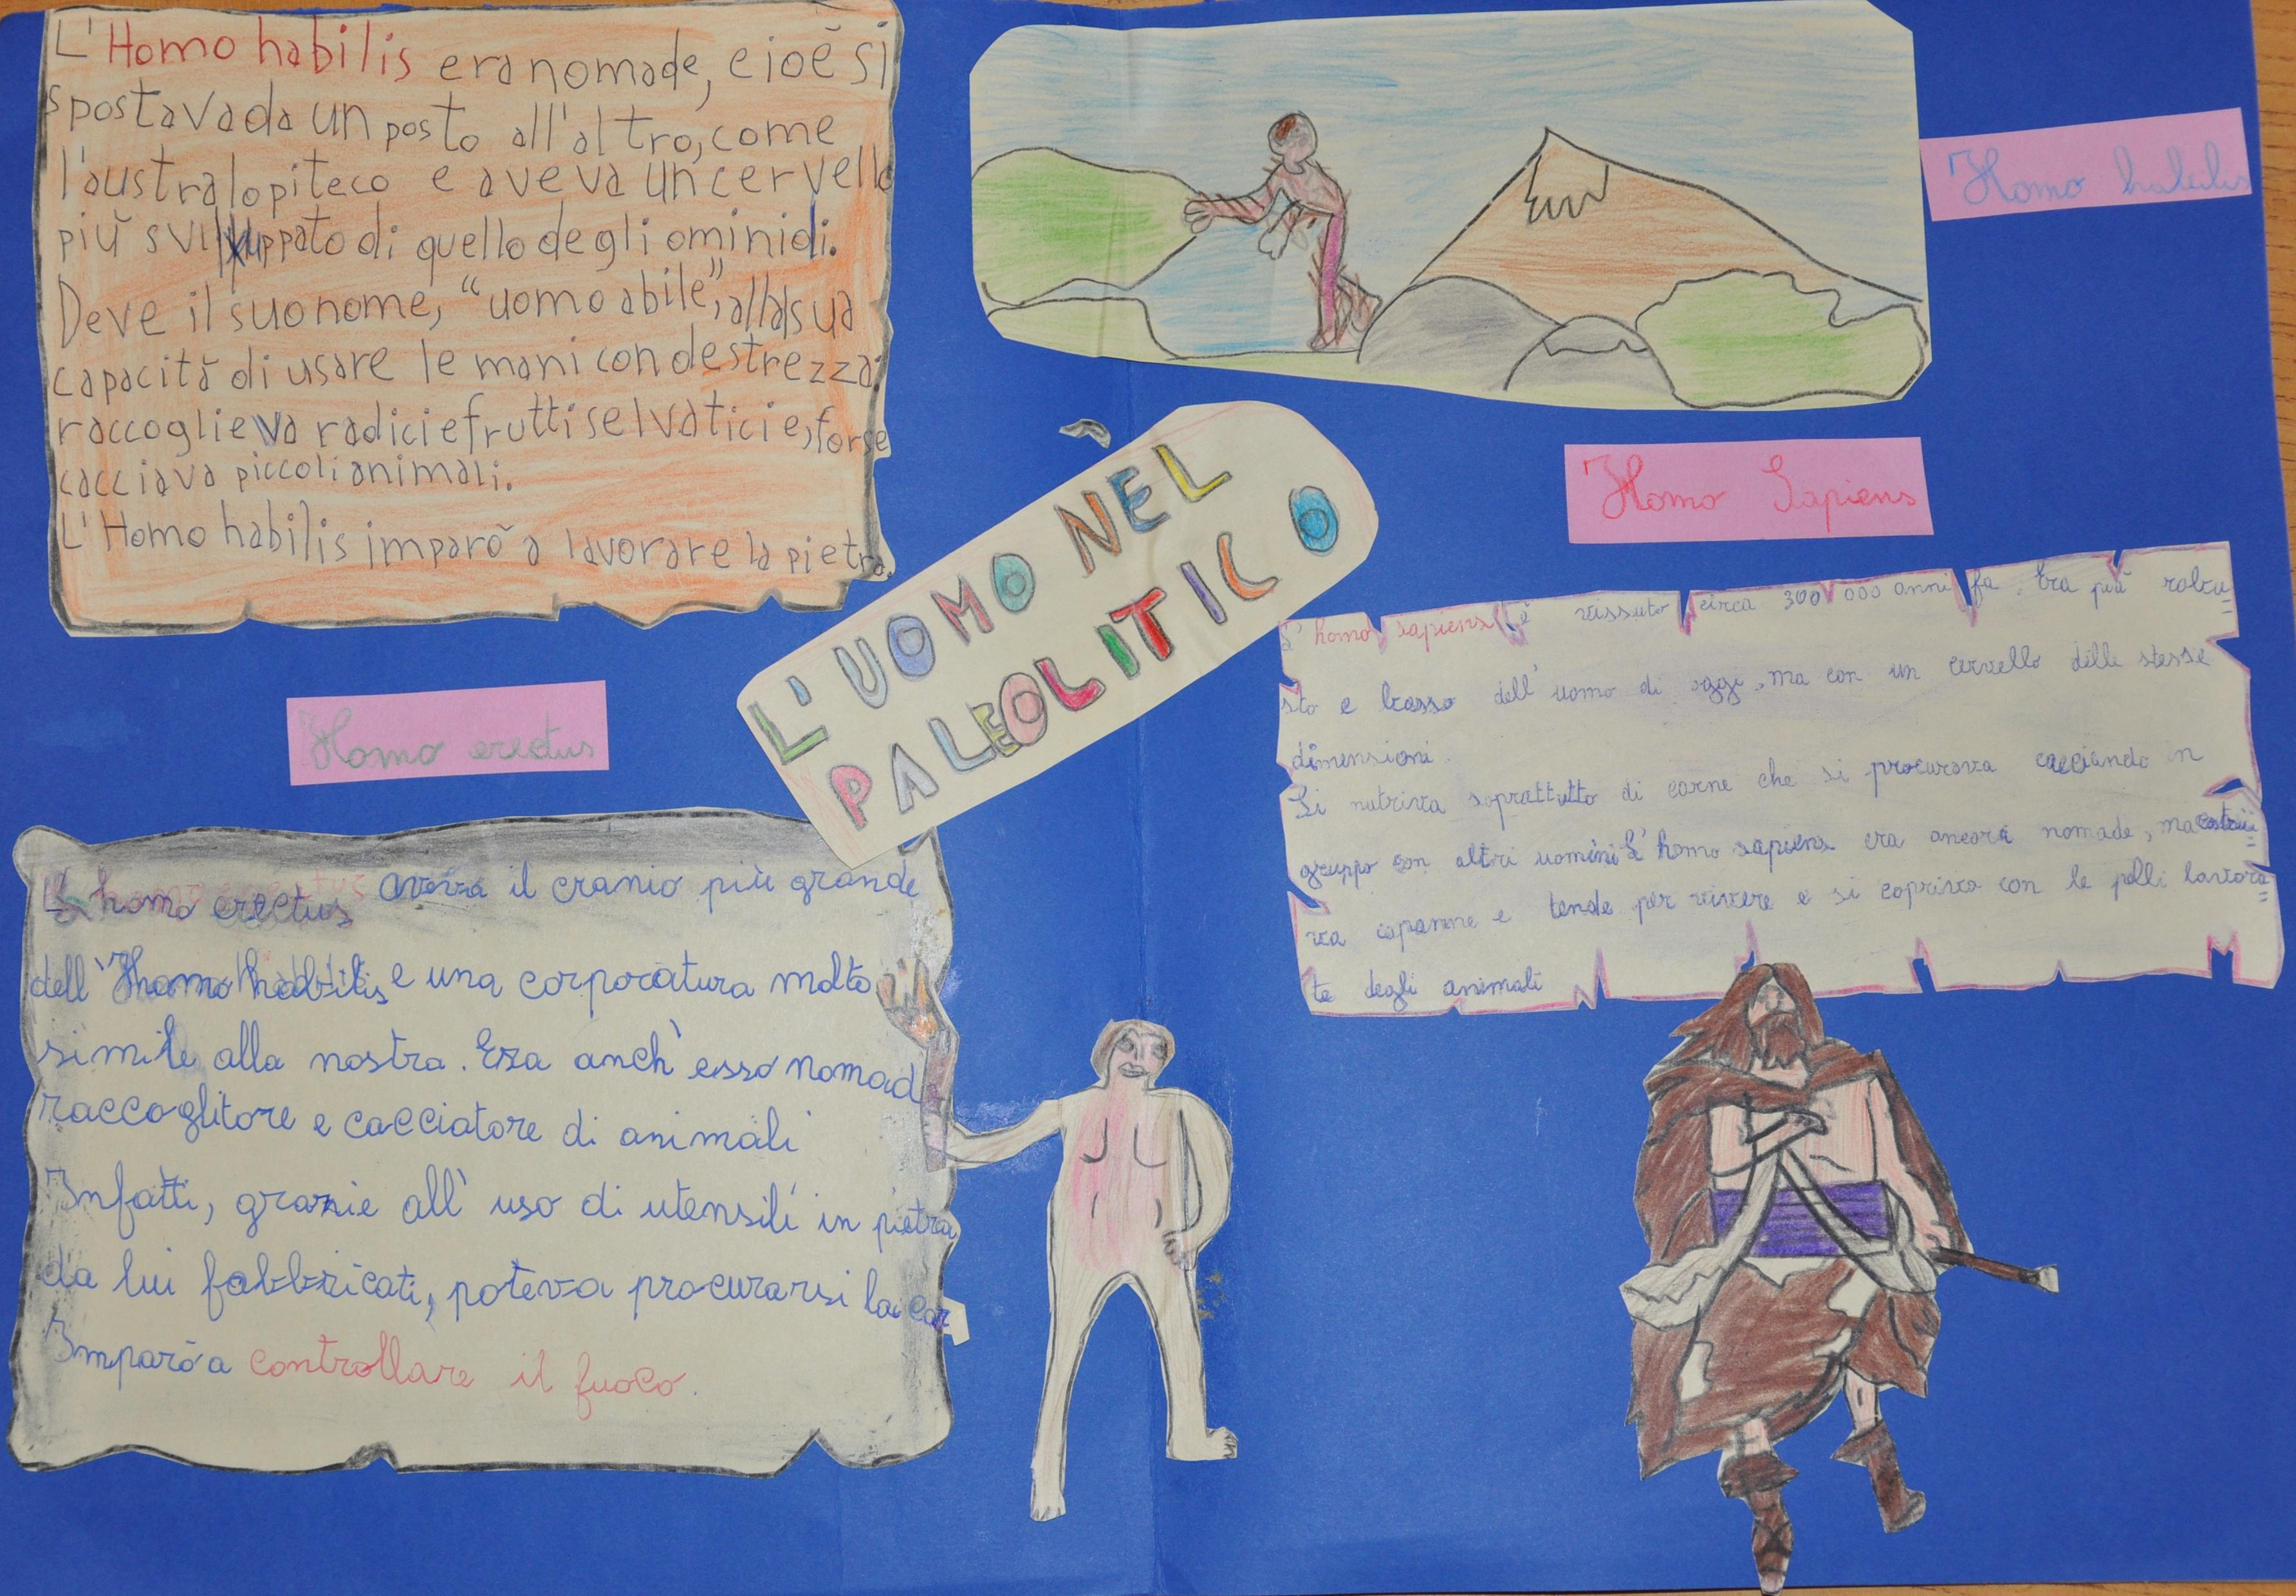 L'Homo habilis era nomade, cioè si
spostava da un posto all'altro, come
l'australopiteco e aveva un cervello
più sviluppato di quello degli ominidi.
Deve il suo nome, “uomo abile”, alla sua
capacità di usare le mani con destrezza:
raccoglieva radici e frutti selvatici e, forse
cacciava piccoli animali.
L'Homo habilis imparò a lavorare la pietra.
Homo habilis
L'UOMO NEL
PALEOLITICO
Homo Sapiens
L'homo sapiens è vissuto circa 300 000 anni fa. Era più robu=
sto e basso dell'uomo di oggi, ma con un cervello dille stesse
dimensioni.
Si nutriva soprattutto di carne che si procurava cacciando in
gruppo con altri uomini L'homo sapiens era ancora nomade, ma costrui=
va capanne e tende per vivere e si copriva con le pelli lavora=
te degli animali
Homo erectus
L'homo erectus aveva il cranio più grande
dell'Homo habilis e una corporatura molto
simile alla nostra. Era anch'esso nomad
raccoglitore e cacciatore di animali
Infatti, grazie all'uso di utensili in pietra
da lui fabbricati, poteva procurarsi la car
Imparò a controllare il fuoco.